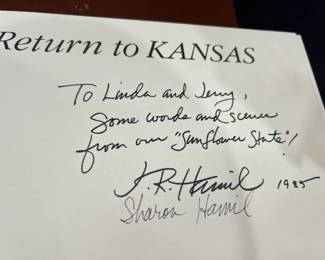 Return to KANSAS
To Linda and Jerry,
Some words and scenes
from our "Sunflower State"!
J.R. Hamil 1985
Sharon Hamil